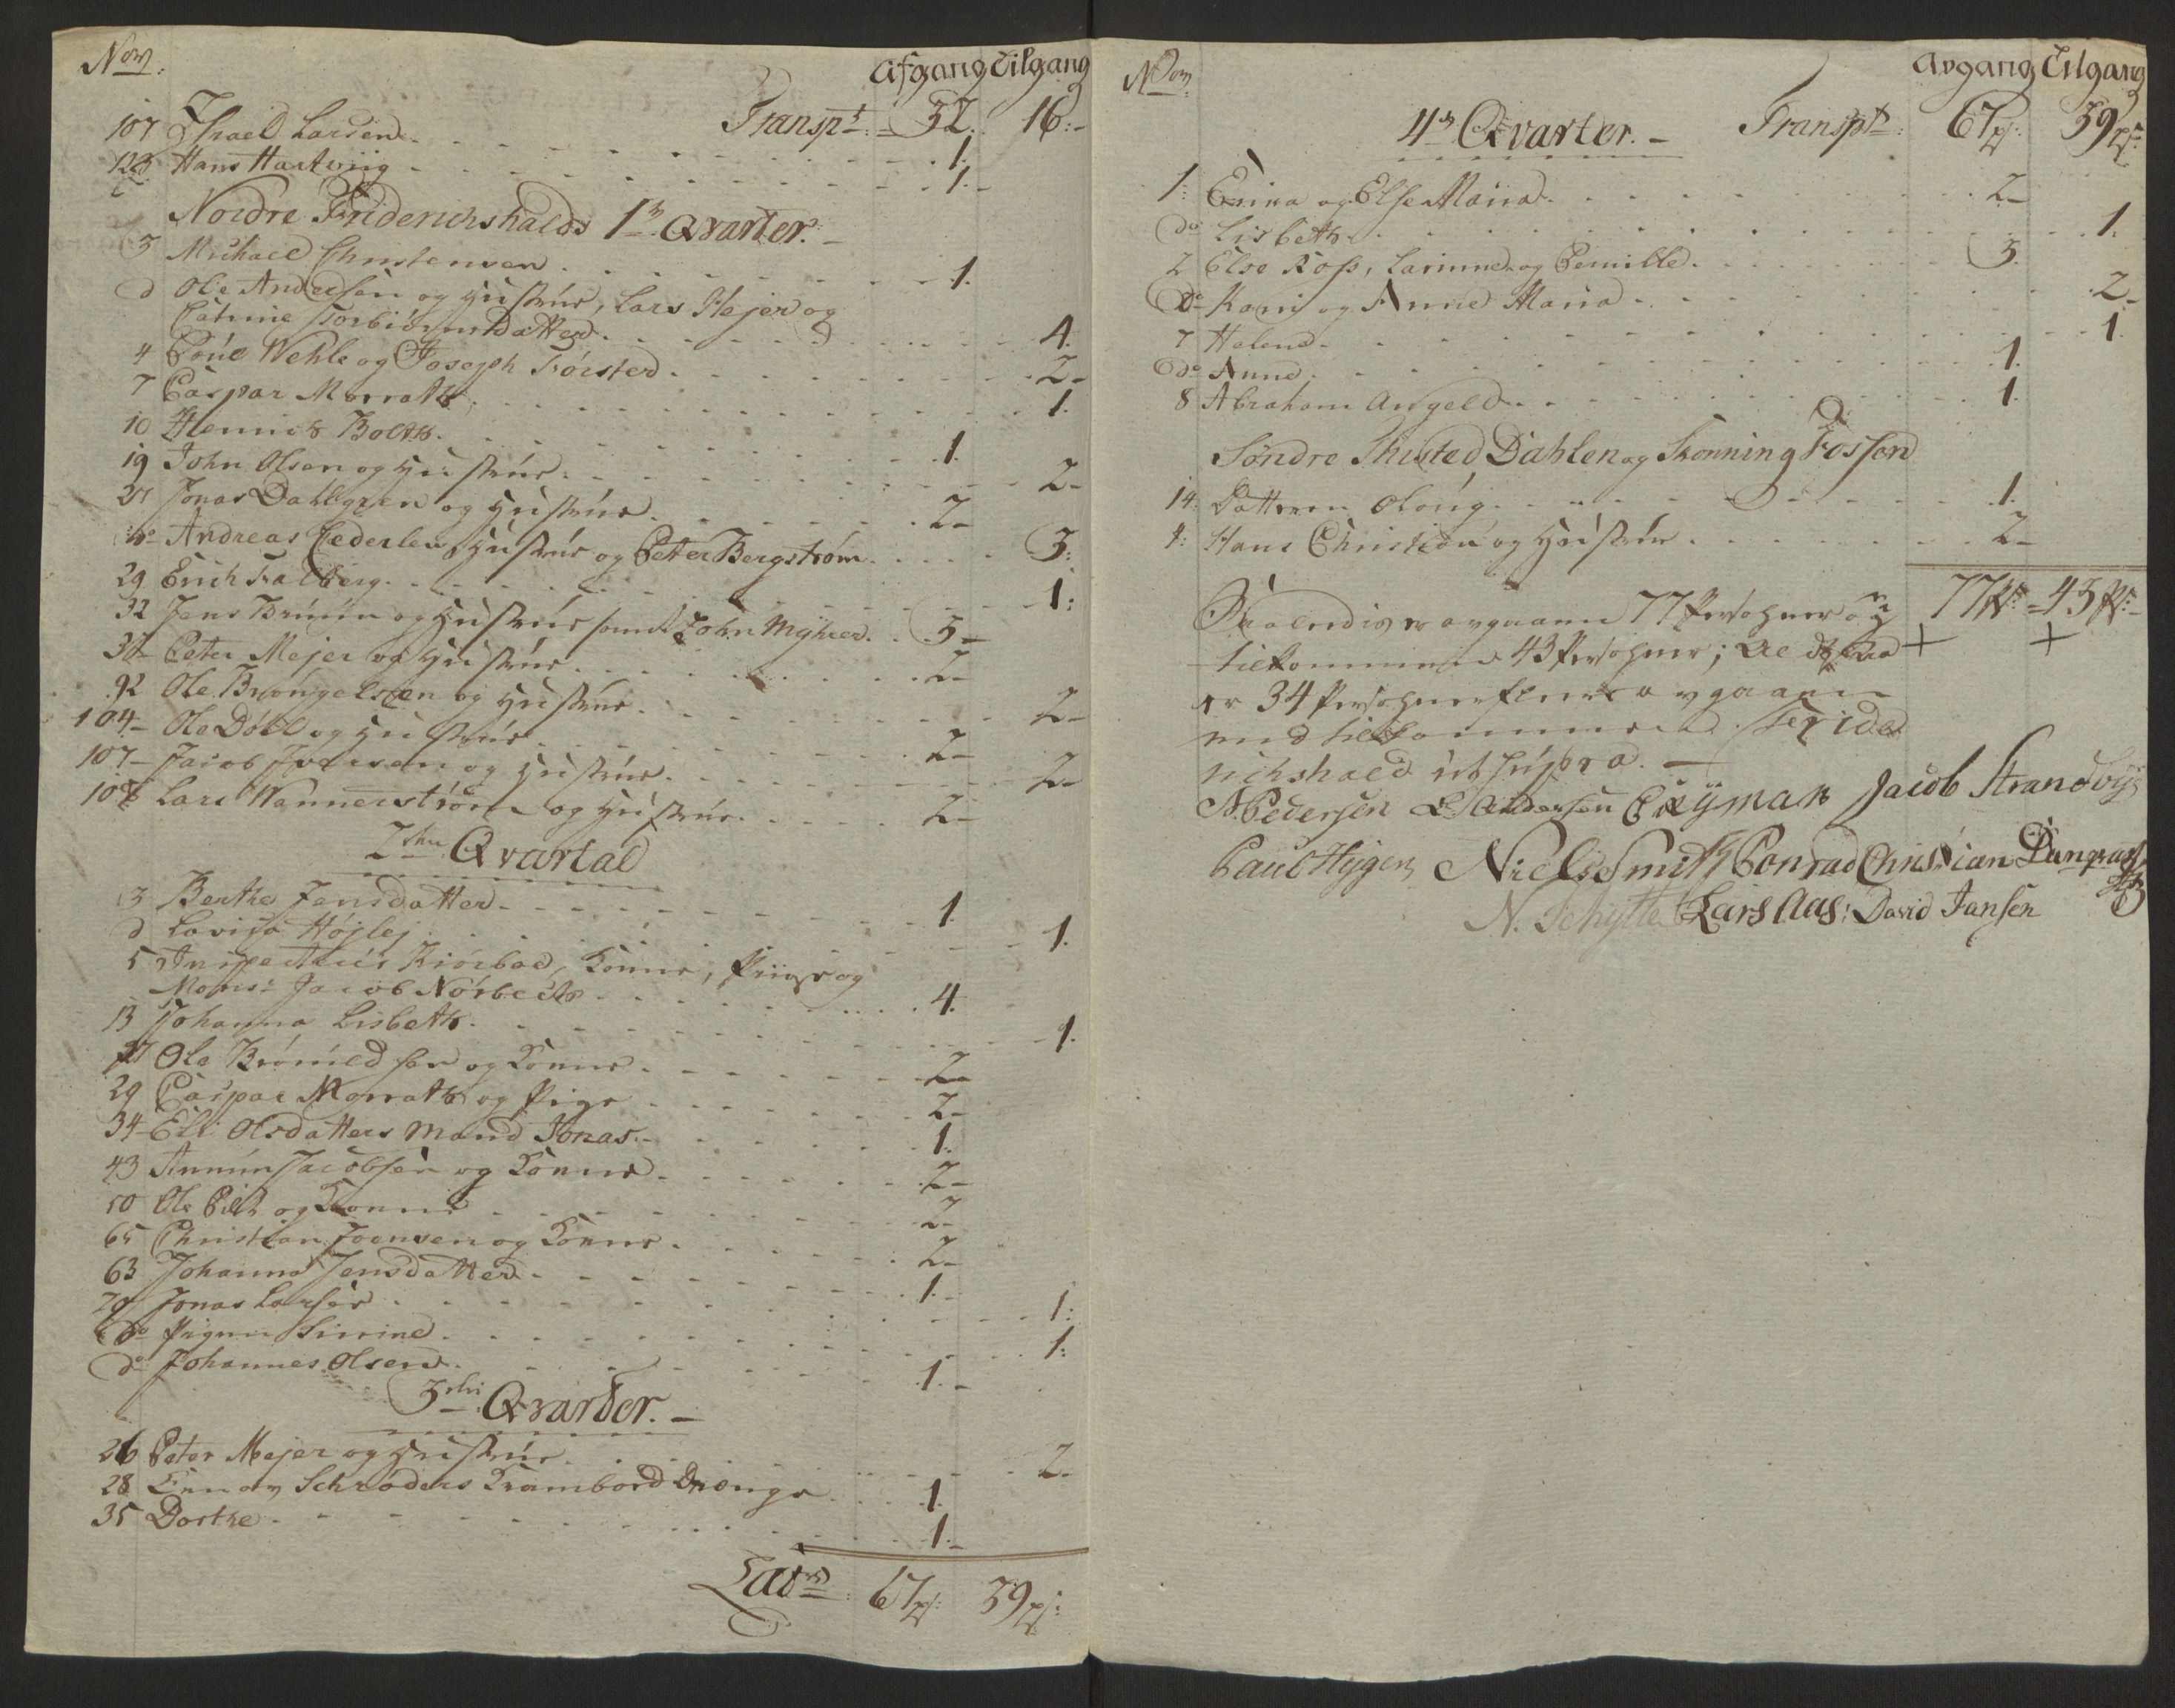 Nor: Afgang Tilgang
Transpt: 32. 16:-
107 Israel Larsen 1.
128 Hans Hartviig 1.-
Nordre Friderichshalds 1ste Qvarter.
3 Michael Christensen 1.
d Ole Andersen og Hustrue, Lars Hejer og
Catrine Torbiörnsdatter 4.
4 Poul Wehle og Joseph Törster 2-
7 Caspar Morrath 1.
10 Hennich Bolth 1.
19 John Olsen og Hustrue 2-
21 Jonas Dahlgren og Hustrue 2-
do Andreas Cederlen, Hustrue og Peter Bergström 3:
29 Erich Falberg 1:
32 Jens Bruun og Hustrue samt John Myhrer 3-
38- Peter Mejer og Hustrue 2-
92 Ole Brongelsen og Hustrue 2-
104- Ole Döhl og Hustrue 2-
107- Jacob Iversen og Hustrue 2-
108 Lars Wannerström og Hustrue 2-
2den Qvartal
3 Berthe Jensdatter 1.
d Lovisa Höjlej 1.
5 Inspecteur Kiörboe, Konne, Piige og
Monsr Jacob Nörbech 4.
13 Johanna Lisbeth 1.
21 Ole Brönildsen og Konne 2-
29 Caspar Morrath og Pige 2-
34 Eli Olsdatters Mand Jonas 1.
43 Ammun Jacobsen og Konne 2-
50 Ole Pilt og Konne 2-
65 Christian Joensen og Konne 2-
63 Johanna Jensdatter 1.-
70 Jonas Larsen 1:
do Pigen Sirine 1:
do Johannes Olsen 1.-
3die Qvarter.-
26 Peter Mejer og Hustrue 2-
28 Een av Schröders Krambord Drenge 1.
35 Dorthe 1.-
Latus 67ps: 39ps:
Nor: Avgang Tilgang
4de Qvarter.- Transpt: 67ps: 39ps:
1: Erina og Else Maria 2-
do Lisbeth 1.
2 Else Ross, Larinne og Pernille 3.
do Karri og Anne Maria 2-
7 Helene 1.
do Anne 1.
8 Abraham Angell 1.
Söndre Thisted Dahlen og Tronning Fossen
14: Datteren Oloug 1.
4: Hans Christian og Hustru 2-
77ps:- 43ps:-
Saaledis er avgaaen 77 Persohner og
tilkommen 43 Persohner; Altsaa
er 34 Persohner fleere avgaaen
end tilkommen. Fride
richshald ut supra.-
N. Pedersen L. Andersen C Nyman Jacob Strandbye
Paul Hygen Niels Smith Conrad Christian Dungvald
N. Schytte Lars Aas: David Jansen